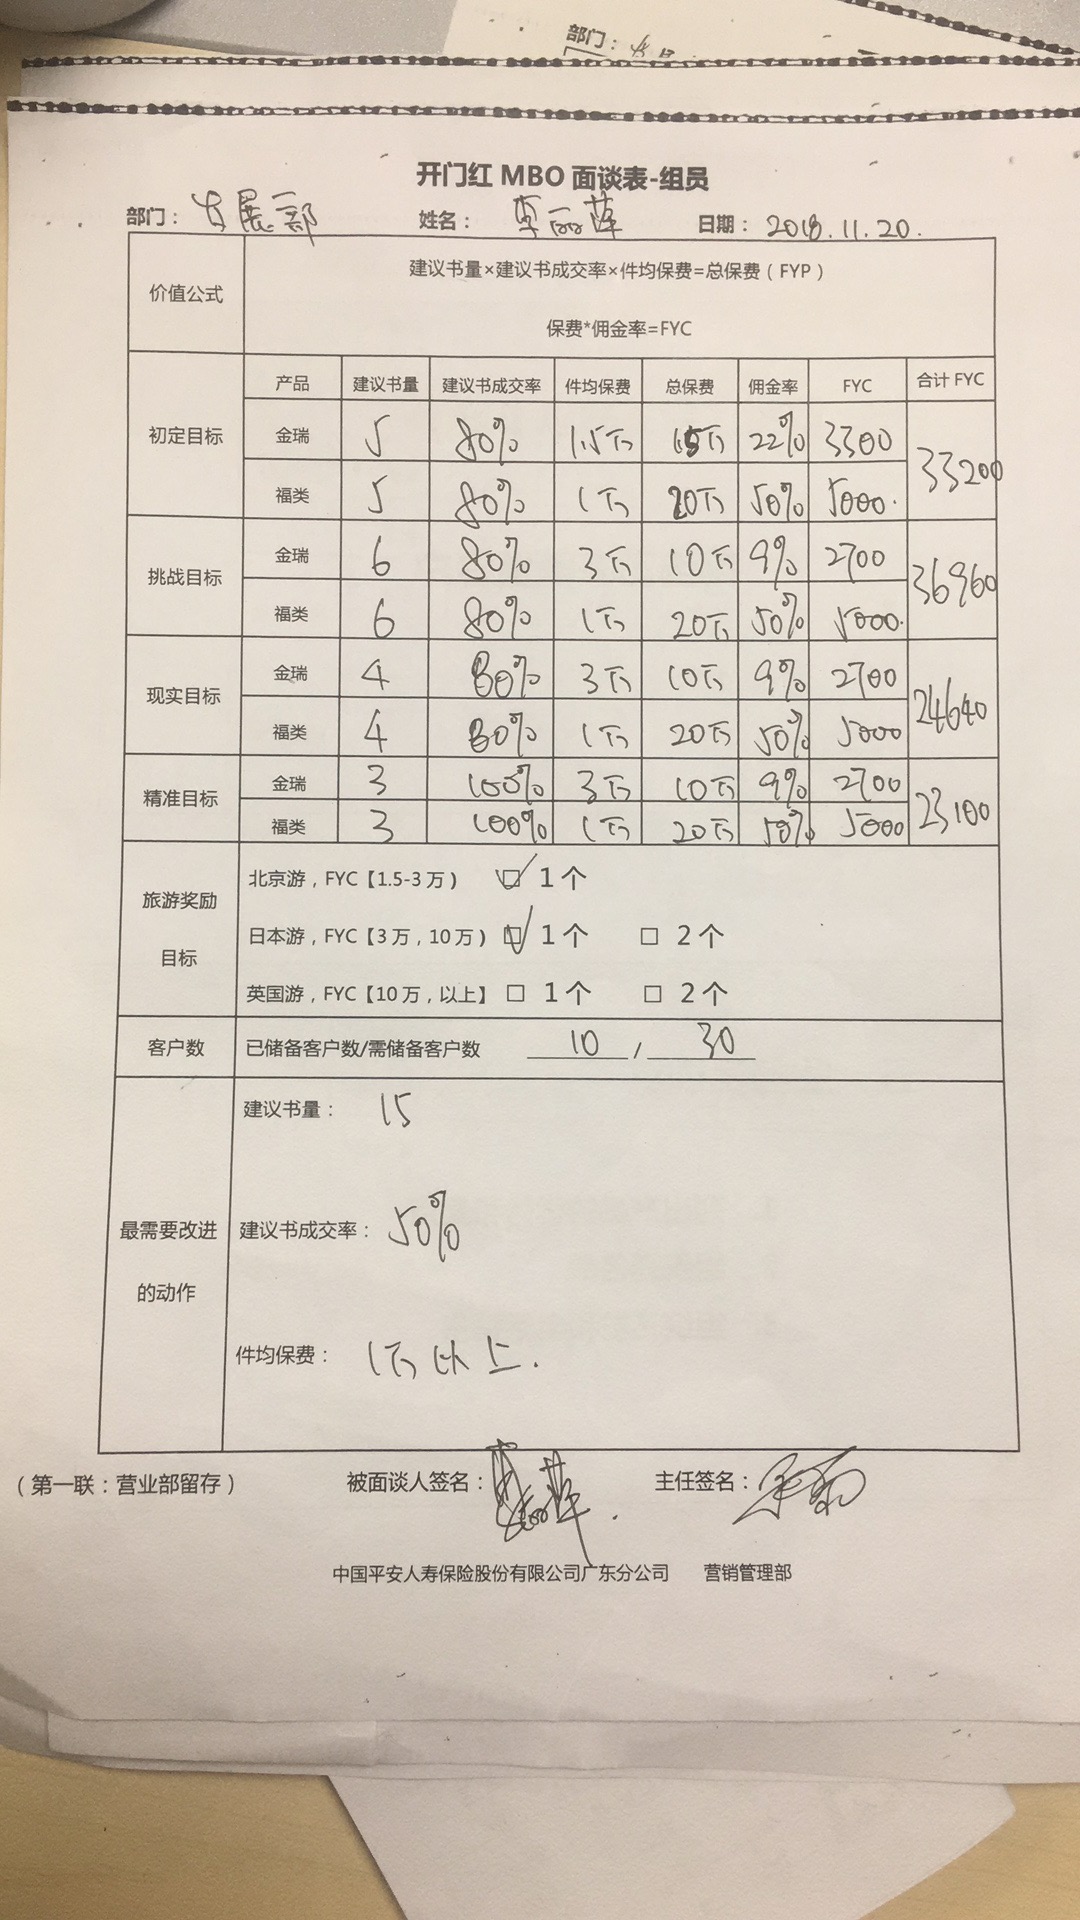 部门：
开门红 MBO 面谈表-组员
部门： 发展一部 姓名： 李丽萍 日期： 2018.11.20.
价值公式 建议书量×建议书成交率×件均保费=总保费（FYP）
保费*佣金率=FYC
产品 建议书量 建议书成交率 件均保费 总保费 佣金率 FYC 合计 FYC
初定目标 金瑞 5 80% 1.5万 15万 22% 3300 33200
福类 5 80% 1万 20万 50% 5000.
挑战目标 金瑞 6 80% 3万 10万 9% 2700 36960
福类 6 80% 1万 20万 50% 5000.
现实目标 金瑞 4 80% 3万 10万 9% 2700 24640
福类 4 80% 1万 20万 50% 5000
精准目标 金瑞 3 100% 3万 10万 9% 2700 23100
福类 3 100% 1万 20万 50% 5000
旅游奖励目标 北京游，FYC【1.5-3 万） ☑ 1 个
日本游，FYC【3 万，10 万） ☑ 1 个 □ 2 个
英国游，FYC【10 万，以上】 □ 1 个 □ 2 个
客户数 已储备客户数/需储备客户数 10 / 30
最需要改进的动作 建议书量： 15
建议书成交率： 50%
件均保费： 1万以上.
（第一联：营业部留存） 被面谈人签名： 李丽萍. 主任签名：
中国平安人寿保险股份有限公司广东分公司 营销管理部